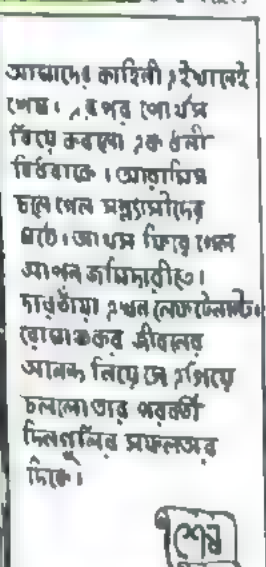 আমাদের কাহিনী এইখানেই
শেষ। এরপর পোর্থস
বিয়ে করলো এক ধনী
বিধবাকে। আরামিস
চলে গেল সন্ন্যাসীদের
মঠে। আথস ফিরে গেল
আপন জমিদারীতে।
দারতাঁয়া এখন লেফটেনান্ট।
রোমাঞ্চকর জীবনের
আনন্দ নিয়ে সে এগিয়ে
চললো তার পরবর্তী
দিনগুলির সফলতার
দিকে।
শেষ